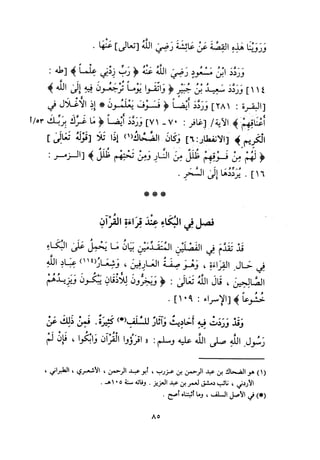 وَرَوَيْنَا هَذِهِ القِصَّةَ عَنْ عَائِشَةَ رَضِيَ اللَّهُ [تعالى] عَنْهَا .
وَرَدَّدَ ابْنُ مَسْعُودٍ رَضِيَ اللَّهُ عَنْهُ ﴿ رَبِّ زِدْنِي عِلْماً ﴾ [طه :
١١٤] وَرَدَّدَ سَعِيدُ بْنُ جُبَيْرٍ ﴿ وَاتَّقُوا يَوْماً تُرْجَعُونَ فِيهِ إِلَى اللَّهِ ﴾
[البقرة : ٢٨١] وَرَدَّدَ أَيْضاً ﴿ فَسَوْفَ يَعْلَمُونَ * إِذِ الْأَغْلَالُ فِي
أَعْنَاقِهِمْ ﴾ الآية/ [غافر : ٧٠ - ٧١] وَرَدَّدَ أَيْضاً ﴿ مَا غَرَّكَ بِرَبِّكَ ٥٣/أ
الْكَرِيمِ ﴾ [الانفطار: ٦] وَكَانَ الضَّحَّاكُ(١) إِذَا تَلَا [قَوْلَهُ تَعَالَى ]
﴿ لَهُمْ مِنْ فَوْقِهِمْ ظُلَلٌ مِنَ النَّارِ وَمِنْ تَحْتِهِمْ ظُلَلٌ ﴾ [الزمر :
١٦] . يُرَدِّدُهَا إِلَى السَّحَرِ .
* * *
فصل في البُكَاءِ عِنْدَ قِرَاءَةِ القُرْآنِ
قَدْ تَقَدَّمَ فِي الفَصْلَيْنِ المُتَقَدِّمَيْنِ بَيَانُ مَا يَحْمِلُ عَلَى البُكَاءِ
فِي حَالِ القِرَاءَةِ ، وَهُوَ صِفَةُ العَارِفِينَ ، وَشِعَارُ عِبَادِ اللَّهِ
الصَّالِحِينَ ، قَالَ اللَّهُ تَعَالَى : ﴿ وَيَخِرُّونَ لِلْأَذْقَانِ يَبْكُونَ وَيَزِيدُهُمْ
خُشُوعاً ﴾ [الإسراء : ١٠٩] .
وَقَدْ وَرَدَتْ فِيهِ أَحَادِيثُ وَآثَارٌ لِلسَّلَفِ(*) كَثِيرَةٌ. فَمِنْ ذَلِكَ عَنْ
رَسُولِ اللَّهِ صلى الله عليه وسلم: « اقْرَؤُوا القُرْآنَ وَابْكُوا ، فَإِنْ لَمْ
(١) هو الضحاك بن عبد الرحمن بن عرزب ، أبو عبد الرحمن ، الأشعري ، الطبراني ،
الأردني ، نائب دمشق لعمر بن عبد العزيز . وفاته سنة ١٠٥هـ .
(*) في الأصل السلف ، وما أثبتناه أصح .
٨٥